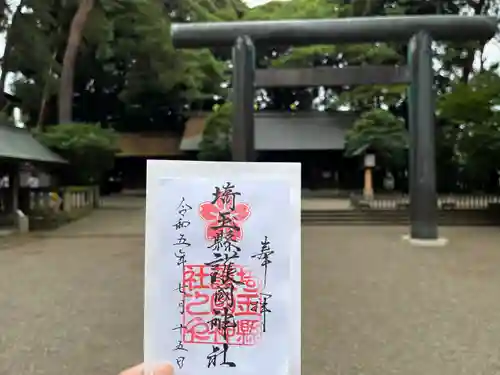 奉拝
埼玉縣護國神社
埼玉縣護國神社之印
令和五年七月十五日